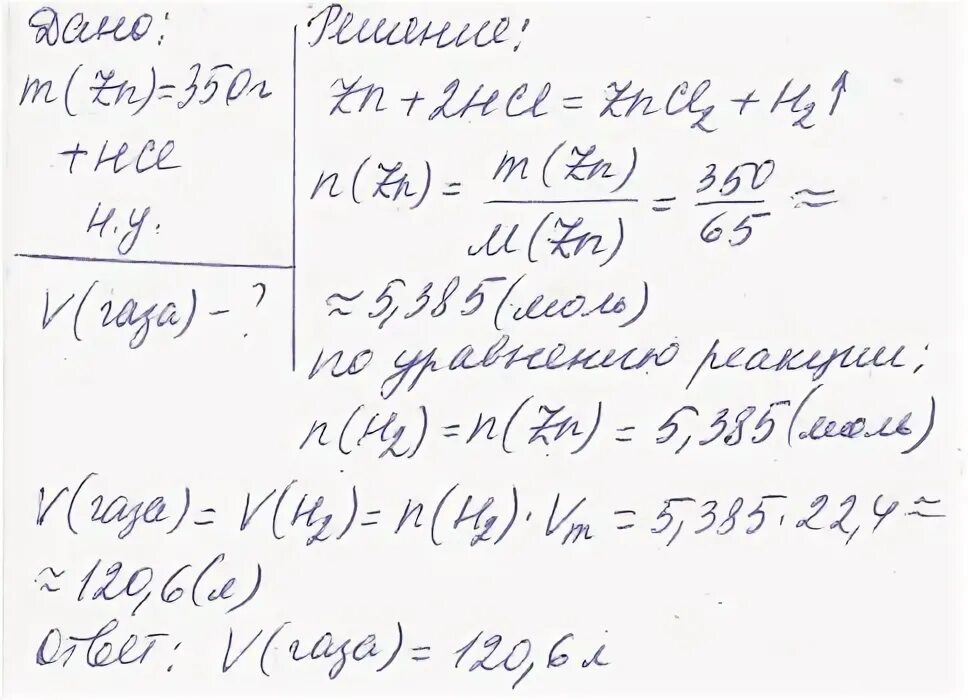 Дано:
m(Zn)=350г
+HCl
н.у.
V(газа) - ?
Решение:
Zn + 2HCl = ZnCl₂ + H₂↑
n(Zn) = m(Zn)/M(Zn) = 350/65 ≈
≈ 5,385 (моль)
по уравнению реакции:
n(H₂) = n(Zn) = 5,385 (моль)
V(газа) = V(H₂) = n(H₂)·Vm = 5,385·22,4 ≈
≈ 120,6 (л)
Ответ: V(газа) = 120,6 л